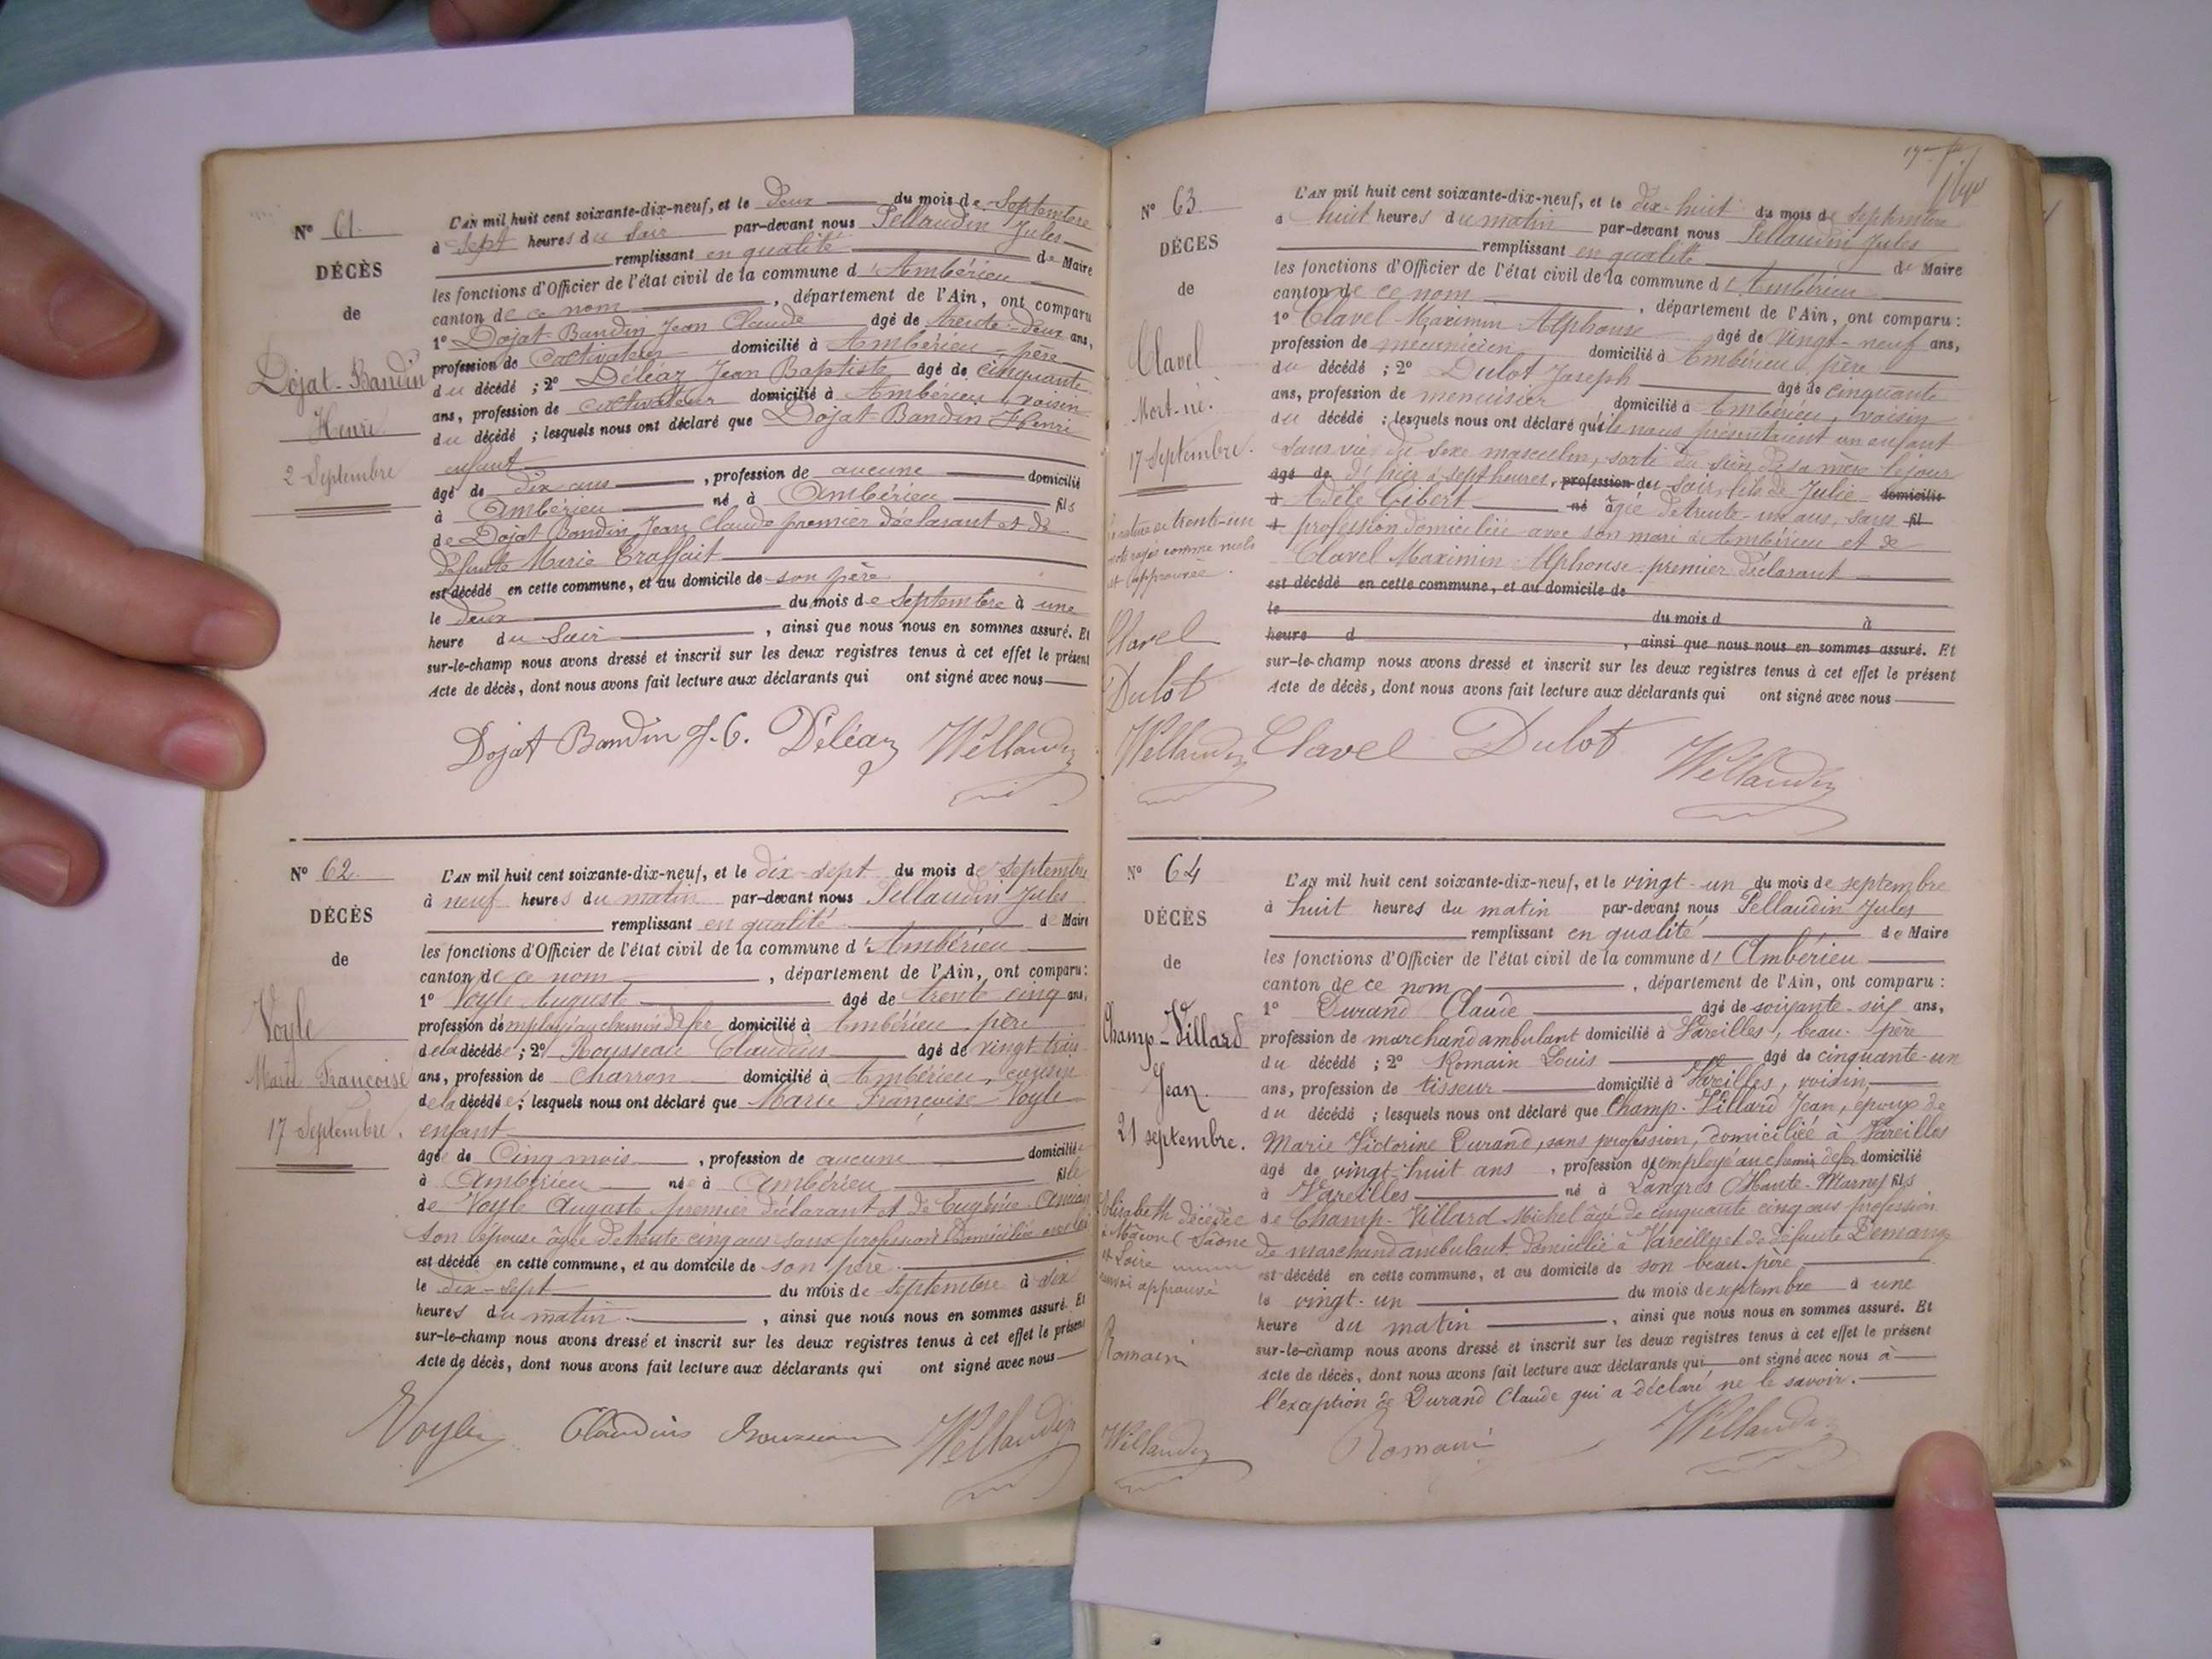 N° 61
DÉCÈS
de
Dojat-Bandin
Henri
2 Septembre
L'AN mil huit cent soixante-dix-neuf, et le Deux du mois de Septembre
à sept heures du soir par-devant nous Pellaudin Jules
remplissant en qualité de Maire
les fonctions d'Officier de l'état civil de la commune d'Ambérieu
canton de ce nom, département de l'Ain, ont comparu
1° Dojat-Bandin Jean Claude âgé de trente-deux ans,
profession de Cultivateur domicilié à Ambérieu, père
du décédé ; 2° Déléaz Jean Baptiste âgé de cinquante
ans, profession de cultivateur domicilié à Ambérieu, voisin
du décédé ; lesquels nous ont déclaré que Dojat-Bandin Henri
enfant
âgé de dix ans, profession de aucune domicilié
à Ambérieu né à Ambérieu fils
de Dojat Bandin Jean Claude premier déclarant et de
défunte Marie Traffait
est décédé en cette commune, et au domicile de son père
le deux du mois de Septembre à une
heure du soir, ainsi que nous nous en sommes assuré. Et
sur-le-champ nous avons dressé et inscrit sur les deux registres tenus à cet effet le présent
Acte de décès, dont nous avons fait lecture aux déclarants qui ont signé avec nous
Dojat Bandin J. C. Déléaz Pellaudin
N° 62
DÉCÈS
de
Voyle
Marie Françoise
17 Septembre.
L'AN mil huit cent soixante-dix-neuf, et le dix-sept du mois de Septembre
à neuf heures du matin par-devant nous Pellaudin Jules
remplissant en qualité de Maire
les fonctions d'Officier de l'état civil de la commune d'Ambérieu
canton de ce nom, département de l'Ain, ont comparu :
1° Voyle Auguste âgé de trente cinq ans,
profession d'employé au chemin de fer domicilié à Ambérieu, père
de la décédée ; 2° Rousseau Claudius âgé de vingt trois
ans, profession de Charron domicilié à Ambérieu, cousin
de la décédée ; lesquels nous ont déclaré que Marie Françoise Voyle
enfant
âgée de Cinq mois, profession de aucune domiciliée
à Ambérieu née à Ambérieu fille
de Voyle Auguste premier déclarant et de Eugénie
son épouse âgée de trente cinq ans sans profession Domiciliée avec lui
est décédé en cette commune, et au domicile de son père
le dix-sept du mois de septembre à six
heures du matin, ainsi que nous nous en sommes assuré. Et
sur-le-champ nous avons dressé et inscrit sur les deux registres tenus à cet effet le présent
Acte de décès, dont nous avons fait lecture aux déclarants qui ont signé avec nous
Voyle Claudius Rousseau Pellaudin
N° 63
DÉCES
de
Clavel
Mort-né.
17 Septembre.
trente-un
mots rayés comme nuls
et approuvé.
Clavel
Dulot
Pellaudin
L'AN mil huit cent soixante-dix-neuf, et le dix-huit du mois de septembre
à huit heures du matin par-devant nous Pellaudin Jules
remplissant en qualité de Maire
les fonctions d'Officier de l'état civil de la commune d'Ambérieu
canton de ce nom, département de l'Ain, ont comparu :
1° Clavel Maximin Alphonse âgé de vingt-neuf ans,
profession de mécanicien domicilié à Ambérieu, père
du décédé ; 2° Dulot Joseph âgé de cinquante
ans, profession de menuisier domicilié à Ambérieu, voisin
du décédé ; lesquels nous ont déclaré qu'ils nous présentaient un enfant
sans vie du sexe masculin, sorti du sein de sa mère le jour
âgé de d'hier à sept heures, profession du soir, fils de Julie domicilié
à Adèle Gibert né âgée de trente-un ans, sans fil
d profession domiciliée avec son mari à Ambérieu et de
Clavel Maximin Alphonse premier déclarant
est décédé en cette commune, et au domicile de
le du mois d à
heure d, ainsi que nous nous en sommes assuré. Et
sur-le-champ nous avons dressé et inscrit sur les deux registres tenus à cet effet le présent
Acte de décès, dont nous avons fait lecture aux déclarants qui ont signé avec nous
Clavel Dulot Pellaudin
N° 64
DÉCÈS
de
Champ-Villard
Jean.
21 septembre.
Elisabeth décédée
à Mâcon (Saône
et Loire
renvoi approuvé
Romain
Pellaudin
L'AN mil huit cent soixante-dix-neuf, et le vingt-un du mois de septembre
à huit heures du matin par-devant nous Pellaudin Jules
remplissant en qualité de Maire
les fonctions d'Officier de l'état civil de la commune d'Ambérieu
canton de ce nom, département de l'Ain, ont comparu :
1° Durand Claude âgé de soixante-six ans,
profession de marchand ambulant domicilié à Vareilles, beau-père
du décédé ; 2° Romain Louis âgé de cinquante-un
ans, profession de tisseur domicilié à Vareilles, voisin,
du décédé ; lesquels nous ont déclaré que Champ-Villard Jean, époux de
Marie Victorine Durand, sans profession, domiciliée à Vareilles
âgé de vingt-huit ans, profession d'employé au chemin de fer domicilié
à Vareilles né à Langres (Haute-Marne) fils
de Champ-Villard Michel âgé de cinquante cinq ans profession
de marchand ambulant domicilié à Vareilles et de défunte Demange
est décédé en cette commune, et au domicile de son beau-père
le vingt-un du mois de septembre à une
heure du matin, ainsi que nous nous en sommes assuré. Et
sur-le-champ nous avons dressé et inscrit sur les deux registres tenus à cet effet le présent
Acte de décès, dont nous avons fait lecture aux déclarants qui ont signé avec nous à
l'exception de Durand Claude qui a déclaré ne le savoir.
Romain Pellaudin